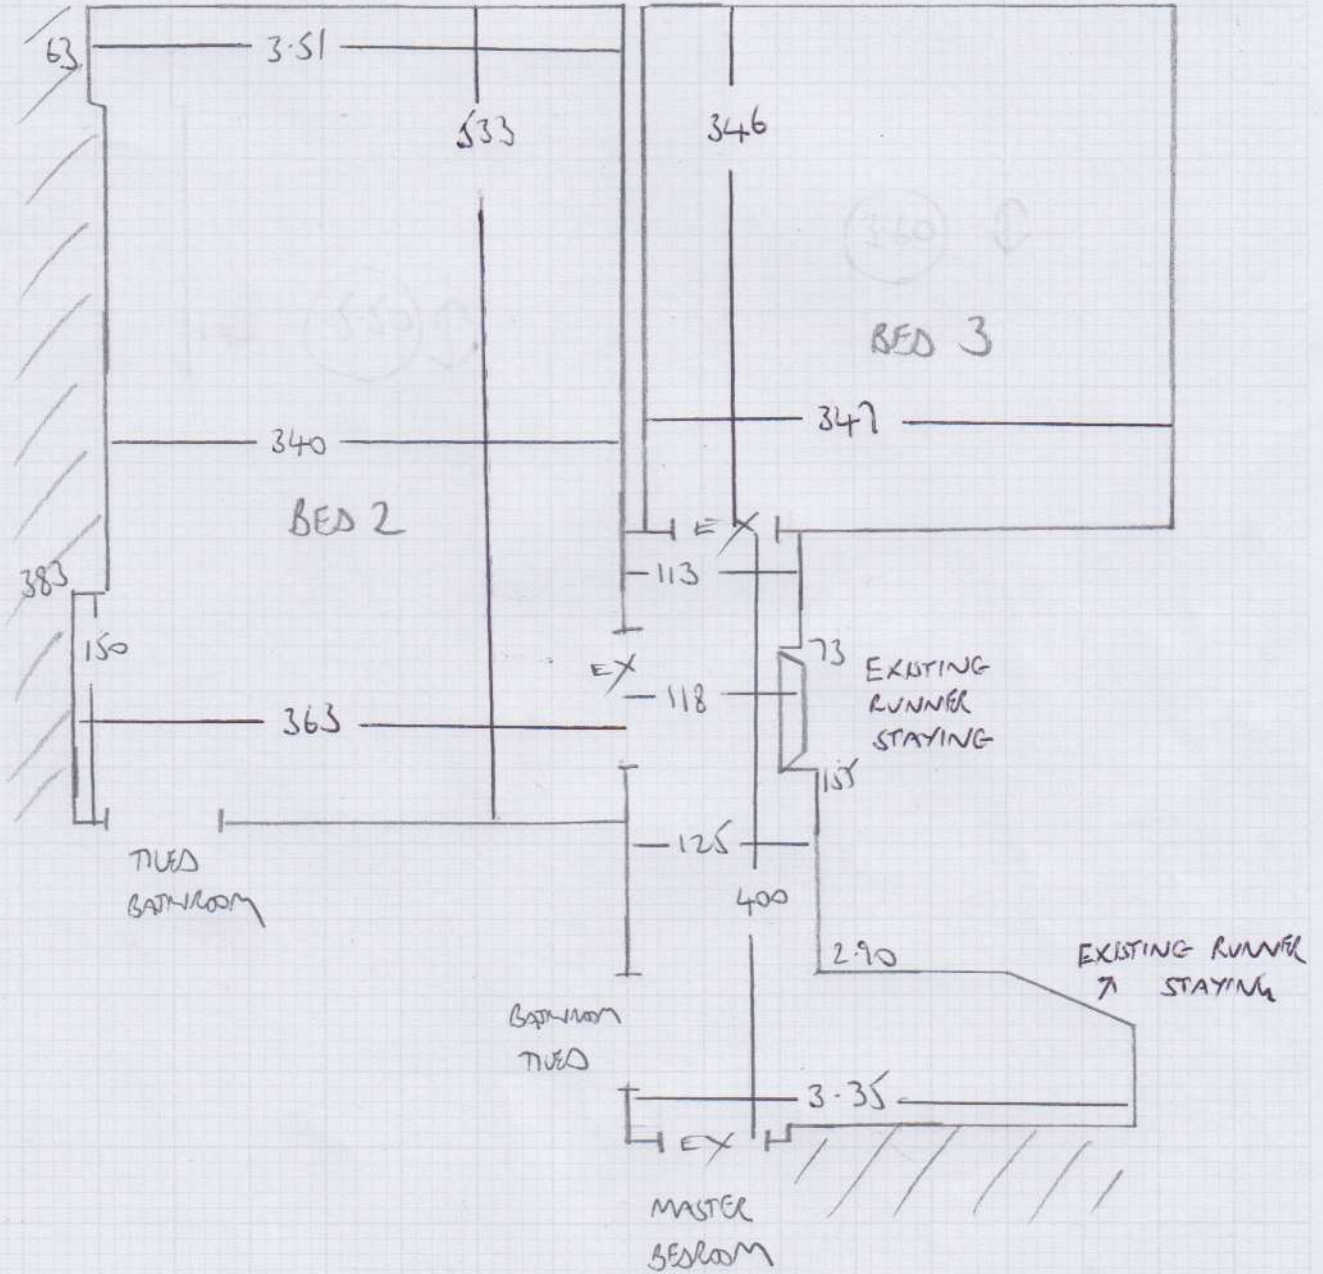 63
3.51
533
346
3.60
3.50
BED 3
347
340
BED 2
EX
113
383
150
73
EXISTING
RUNNER
STAYING
EX
118
363
155
125
TILED
BATHROOM
400
2.90
EXISTING RUNNER
STAYING
BATHROOM
TILED
3.35
EX
MASTER
BEDROOM